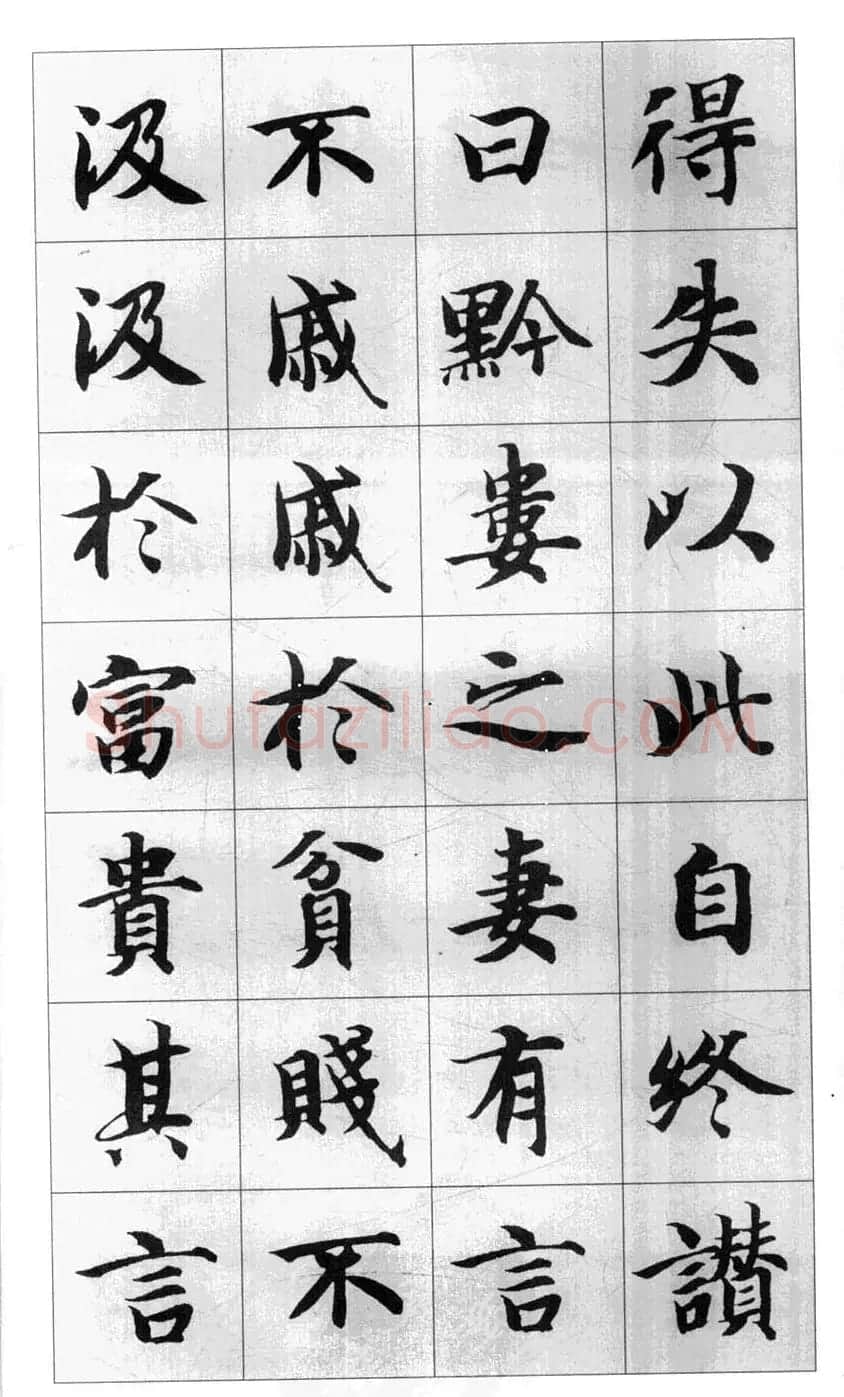 得失以此自終讃
曰黔婁之妻有言
不戚戚於貧賤不
汲汲於富貴其言
Shufaziliao.COM